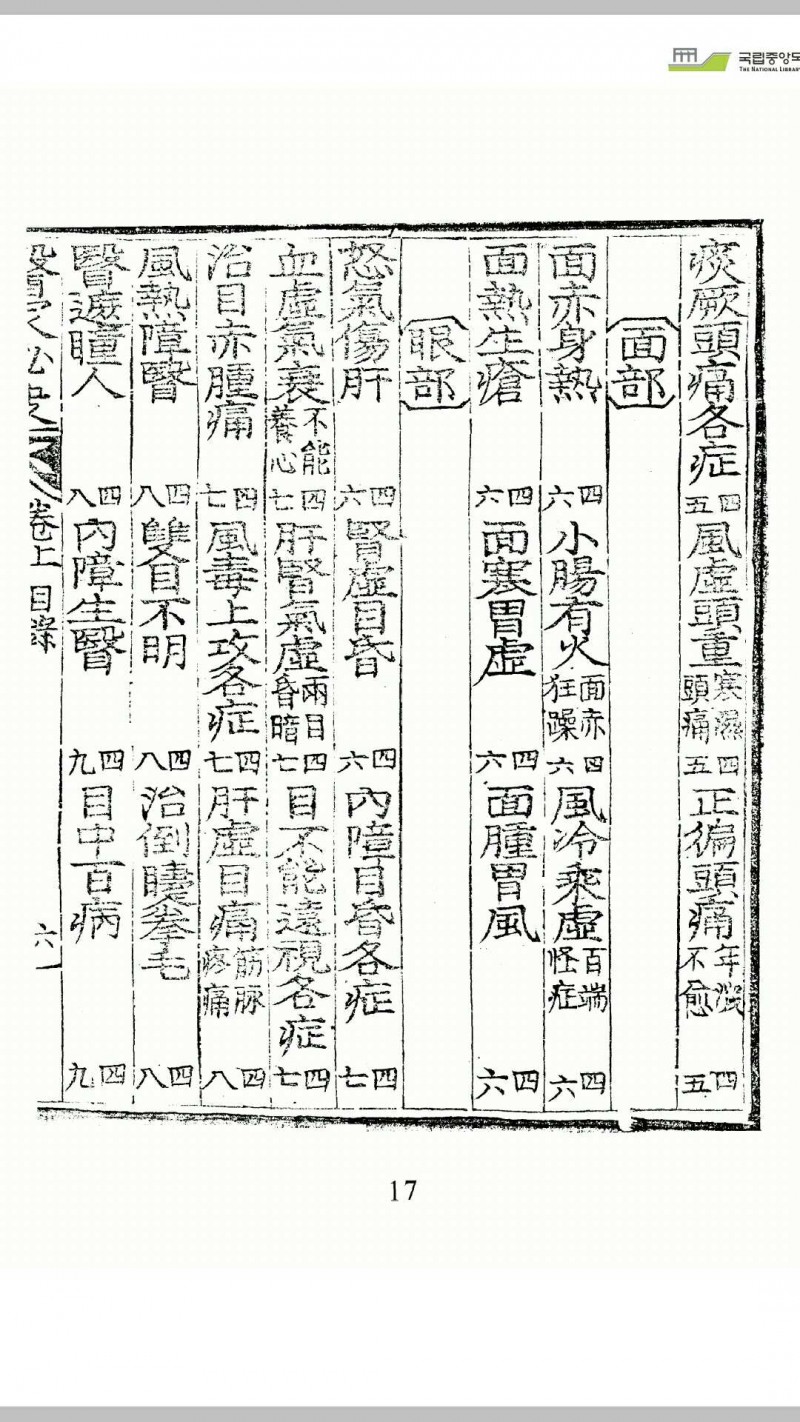 국립중앙도
THE NATIONAL LIBRARY
痰厥頭痛各症 四五 風虛頭重 寒濕頭痛 四五 正徧頭痛 年深不愈 四五
面部
面赤身熱 四六 小腸有火 面赤狂躁 四六 風冷乘虛 百端怪症 四六
面熱生瘡 四六 面寒胃虛 四六 面腫胃風 四六
眼部
怒氣傷肝 四六 腎虛目昏 四六 內障目昏各症 四七
血虛氣衰 不能養心 四七 肝腎氣虛 兩目昏暗 四七 目不能遠視各症 四七
治目赤腫痛 四七 風毒上攻各症 四七 肝虛目痛 筋脉疼痛 四八
風熱障瞖 四八 雙目不明 四八 治倒睫拳毛 四八
瞖遮瞳人 四八 內障生瞖 四九 目中百病 四九
卷上 目錄 六
17